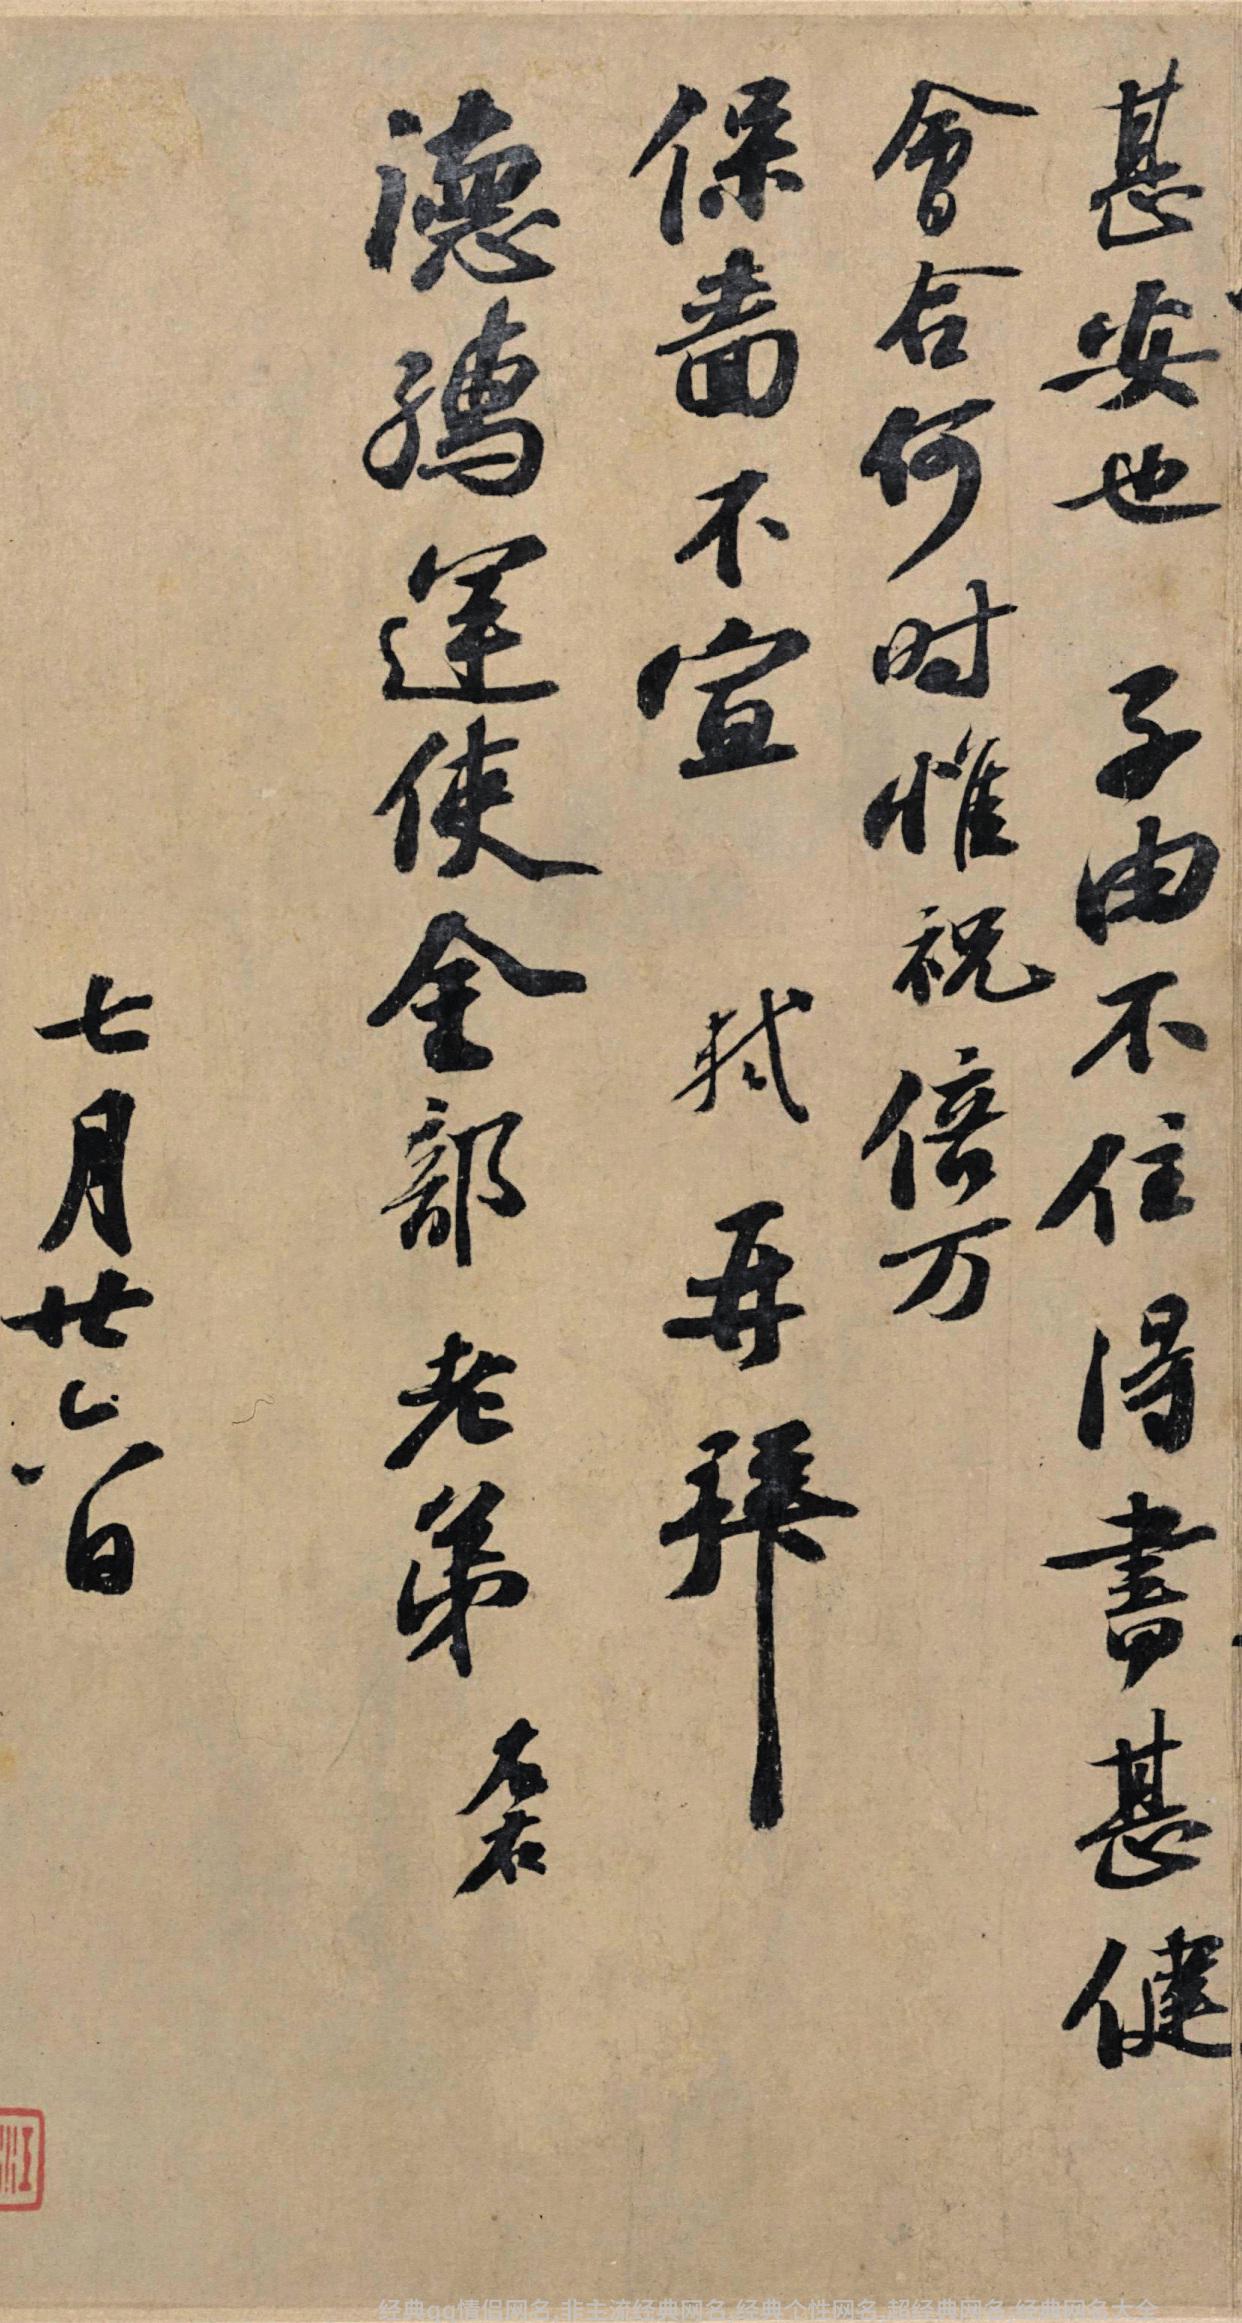 甚安也 子由不住得書甚健
會合何时惟祝倍万
保嗇不宣 軾再拜
德孺運使金部老弟 左右
七月廿六日
经典qq情侣网名,非主流经典网名,经典个性网名,超经典网名,经典网名大全